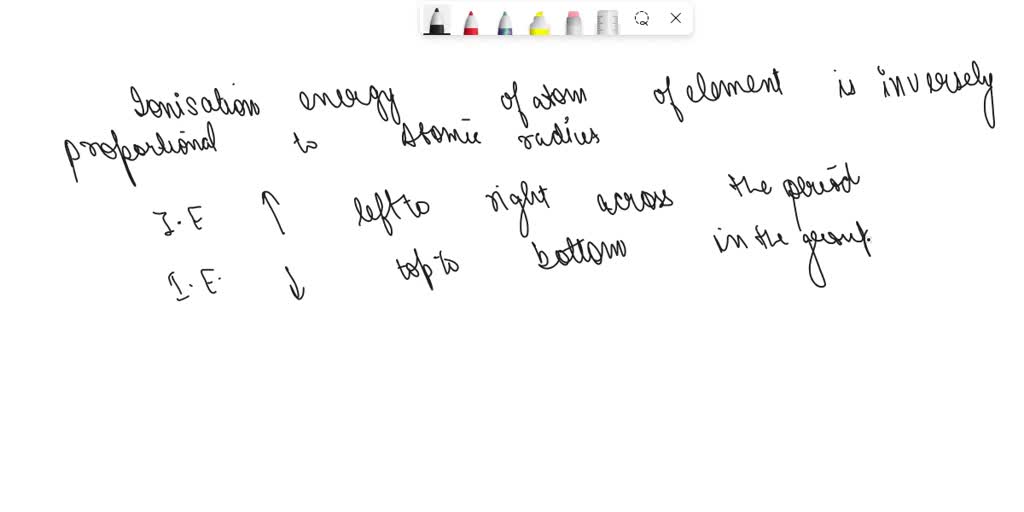 Ionisation energy of atom of element is inversely
proportional to Atomic radius
I.E ↑ left to right across the period
I.E. ↓ top to bottom in the group.